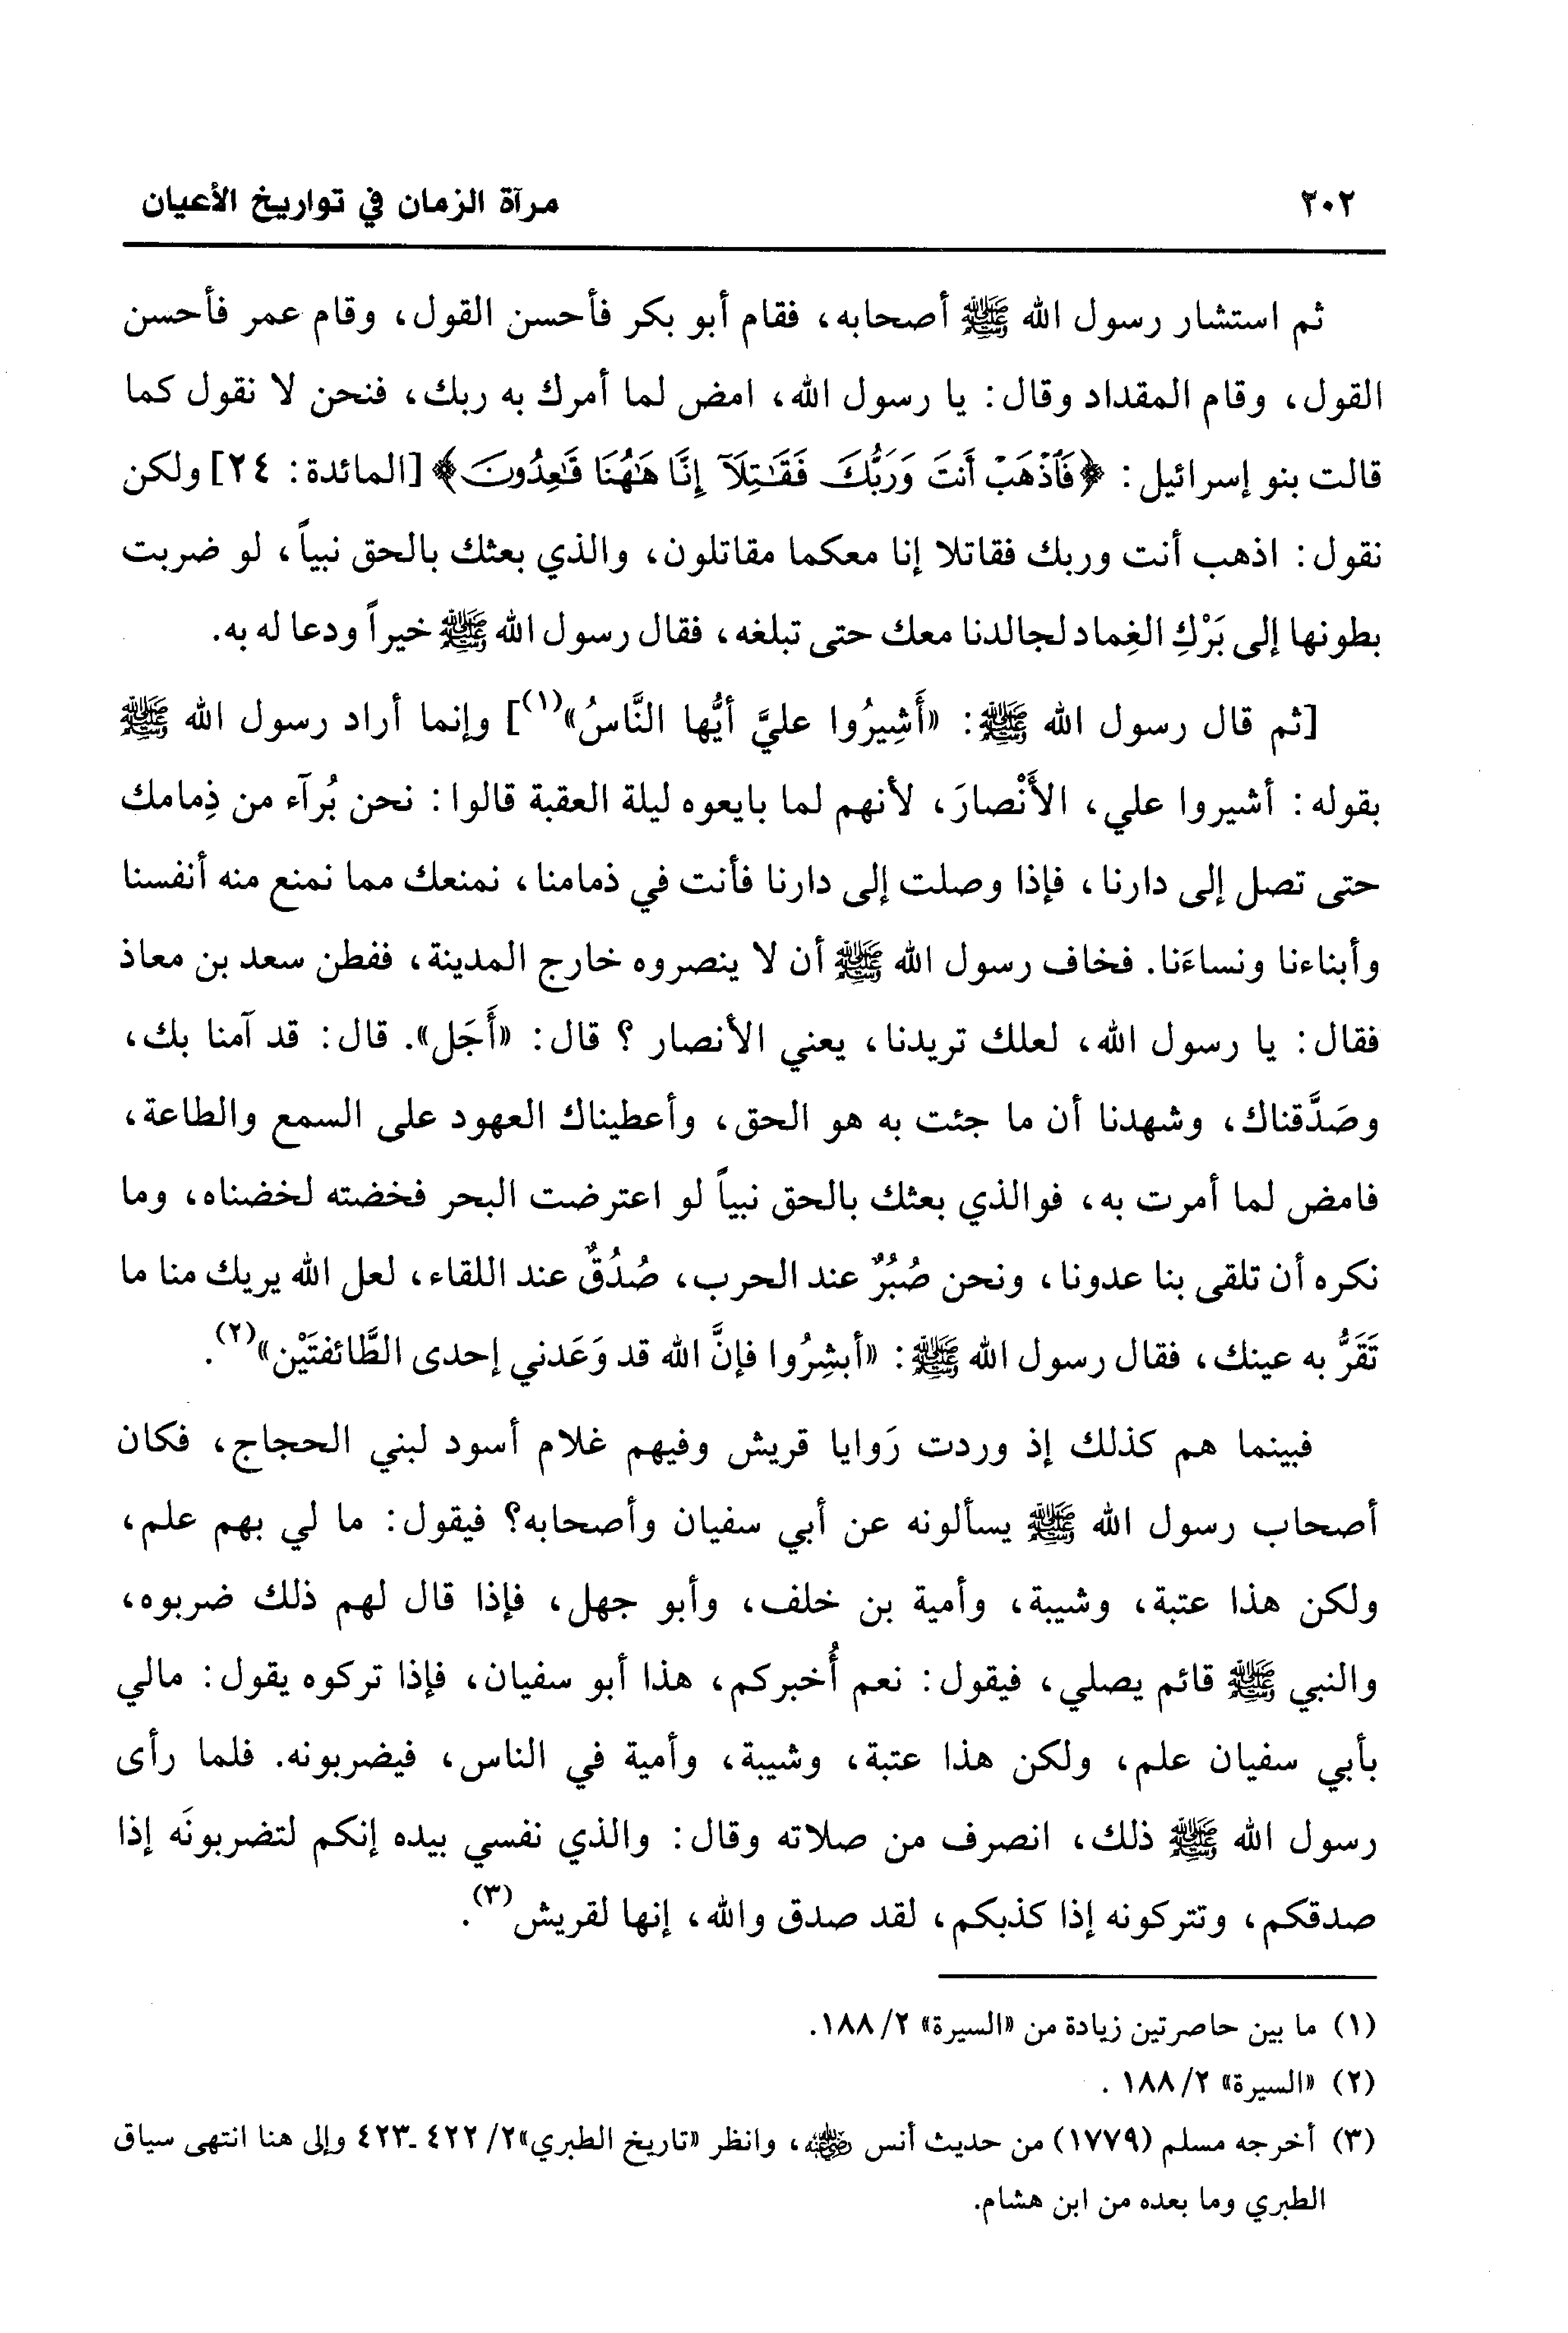 ٢٠٢ مرآة الزمان في تواريخ الأعيان
ثم استشار رسول الله ﷺ أصحابه، فقام أبو بكر فأحسن القول، وقام عمر فأحسن
القول، وقام المقداد وقال: يا رسول الله، امض لما أمرك به ربك، فنحن لا نقول كما
قالت بنو إسرائيل: ﴿فَاذْهَبْ أَنتَ وَرَبُّكَ فَقَاتِلَا إِنَّا هَاهُنَا قَاعِدُونَ﴾ [المائدة: ٢٤] ولكن
نقول: اذهب أنت وربك فقاتلا إنا معكما مقاتلون، والذي بعثك بالحق نبياً، لو ضربت
بطونها إلى بَرْكِ الغِماد لجالدنا معك حتى تبلغه، فقال رسول الله ﷺ خيراً ودعا له به.
[ثم قال رسول الله ﷺ: «أَشِيرُوا عليَّ أيُّها النَّاسُ»(١)] وإنما أراد رسول الله ﷺ
بقوله: أشيروا علي، الأَنْصارَ، لأنهم لما بايعوه ليلة العقبة قالوا: نحن بُرآء من ذِمامك
حتى تصل إلى دارنا، فإذا وصلت إلى دارنا فأنت في ذمامنا، نمنعك مما نمنع منه أنفسنا
وأبناءنا ونساءَنا. فخاف رسول الله ﷺ أن لا ينصروه خارج المدينة، ففطن سعد بن معاذ
فقال: يا رسول الله، لعلك تريدنا، يعني الأنصار ؟ قال: «أَجَل». قال: قد آمنا بك،
وصَدَّقناك، وشهدنا أن ما جئت به هو الحق، وأعطيناك العهود على السمع والطاعة،
فامض لما أمرت به، فوالذي بعثك بالحق نبياً لو اعترضت البحر فخضته لخضناه، وما
نكره أن تلقى بنا عدونا، ونحن صُبُرٌ عند الحرب، صُدُقٌ عند اللقاء، لعل الله يريك منا ما
تَقَرُّ به عينك، فقال رسول الله ﷺ: «أبشِرُوا فإنَّ الله قد وَعَدني إحدى الطَّائفتَيْن»(٢).
فبينما هم كذلك إذ وردت رَوايا قريش وفيهم غلام أسود لبني الحجاج، فكان
أصحاب رسول الله ﷺ يسألونه عن أبي سفيان وأصحابه؟ فيقول: ما لي بهم علم،
ولكن هذا عتبة، وشيبة، وأمية بن خلف، وأبو جهل، فإذا قال لهم ذلك ضربوه،
والنبي ﷺ قائم يصلي، فيقول: نعم أُخبركم، هذا أبو سفيان، فإذا تركوه يقول: مالي
بأبي سفيان علم، ولكن هذا عتبة، وشيبة، وأمية في الناس، فيضربونه. فلما رأى
رسول الله ﷺ ذلك، انصرف من صلاته وقال: والذي نفسي بيده إنكم لتضربونَه إذا
صدقكم، وتتركونه إذا كذبكم، لقد صدق والله، إنها لقريش(٣).
(١) ما بين حاصرتين زيادة من «السيرة» ٢/ ١٨٨.
(٢) «السيرة» ٢/ ١٨٨ .
(٣) أخرجه مسلم (١٧٧٩) من حديث أنس رضي الله عنه، وانظر «تاريخ الطبري»٢/ ٤٢٢ـ٤٢٣ وإلى هنا انتهى سياق
الطبري وما بعده من ابن هشام.